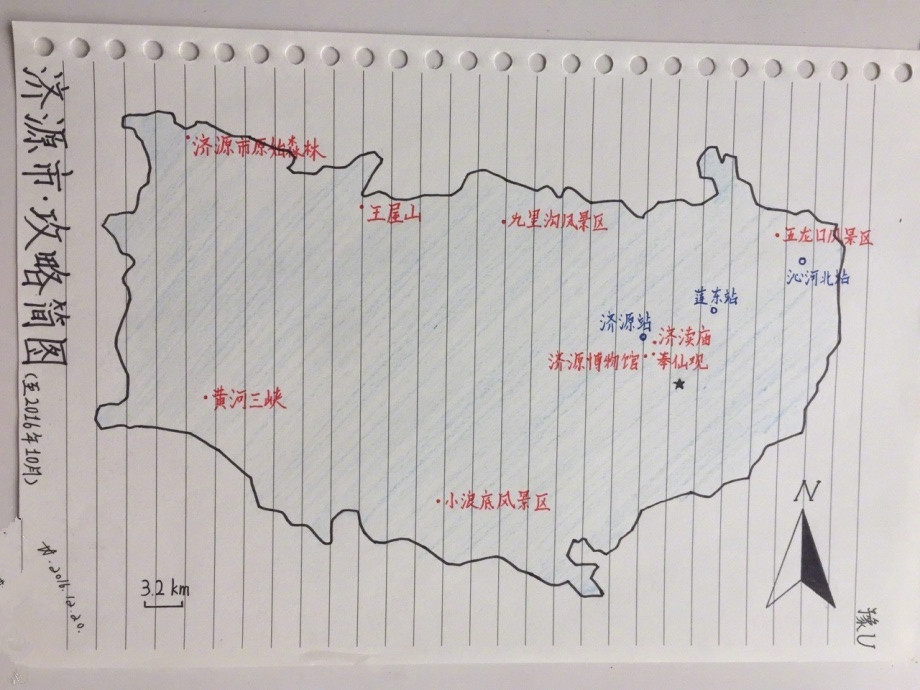 济源市·攻略简图
(至2016年10月)
2016.12.20.
济源市原始森林
王屋山
九里沟风景区
五龙口风景区
沁河北站
莲东站
济源站
济渎庙
济源博物馆
奉仙观
黄河三峡
小浪底风景区
N
3.2 km
豫U